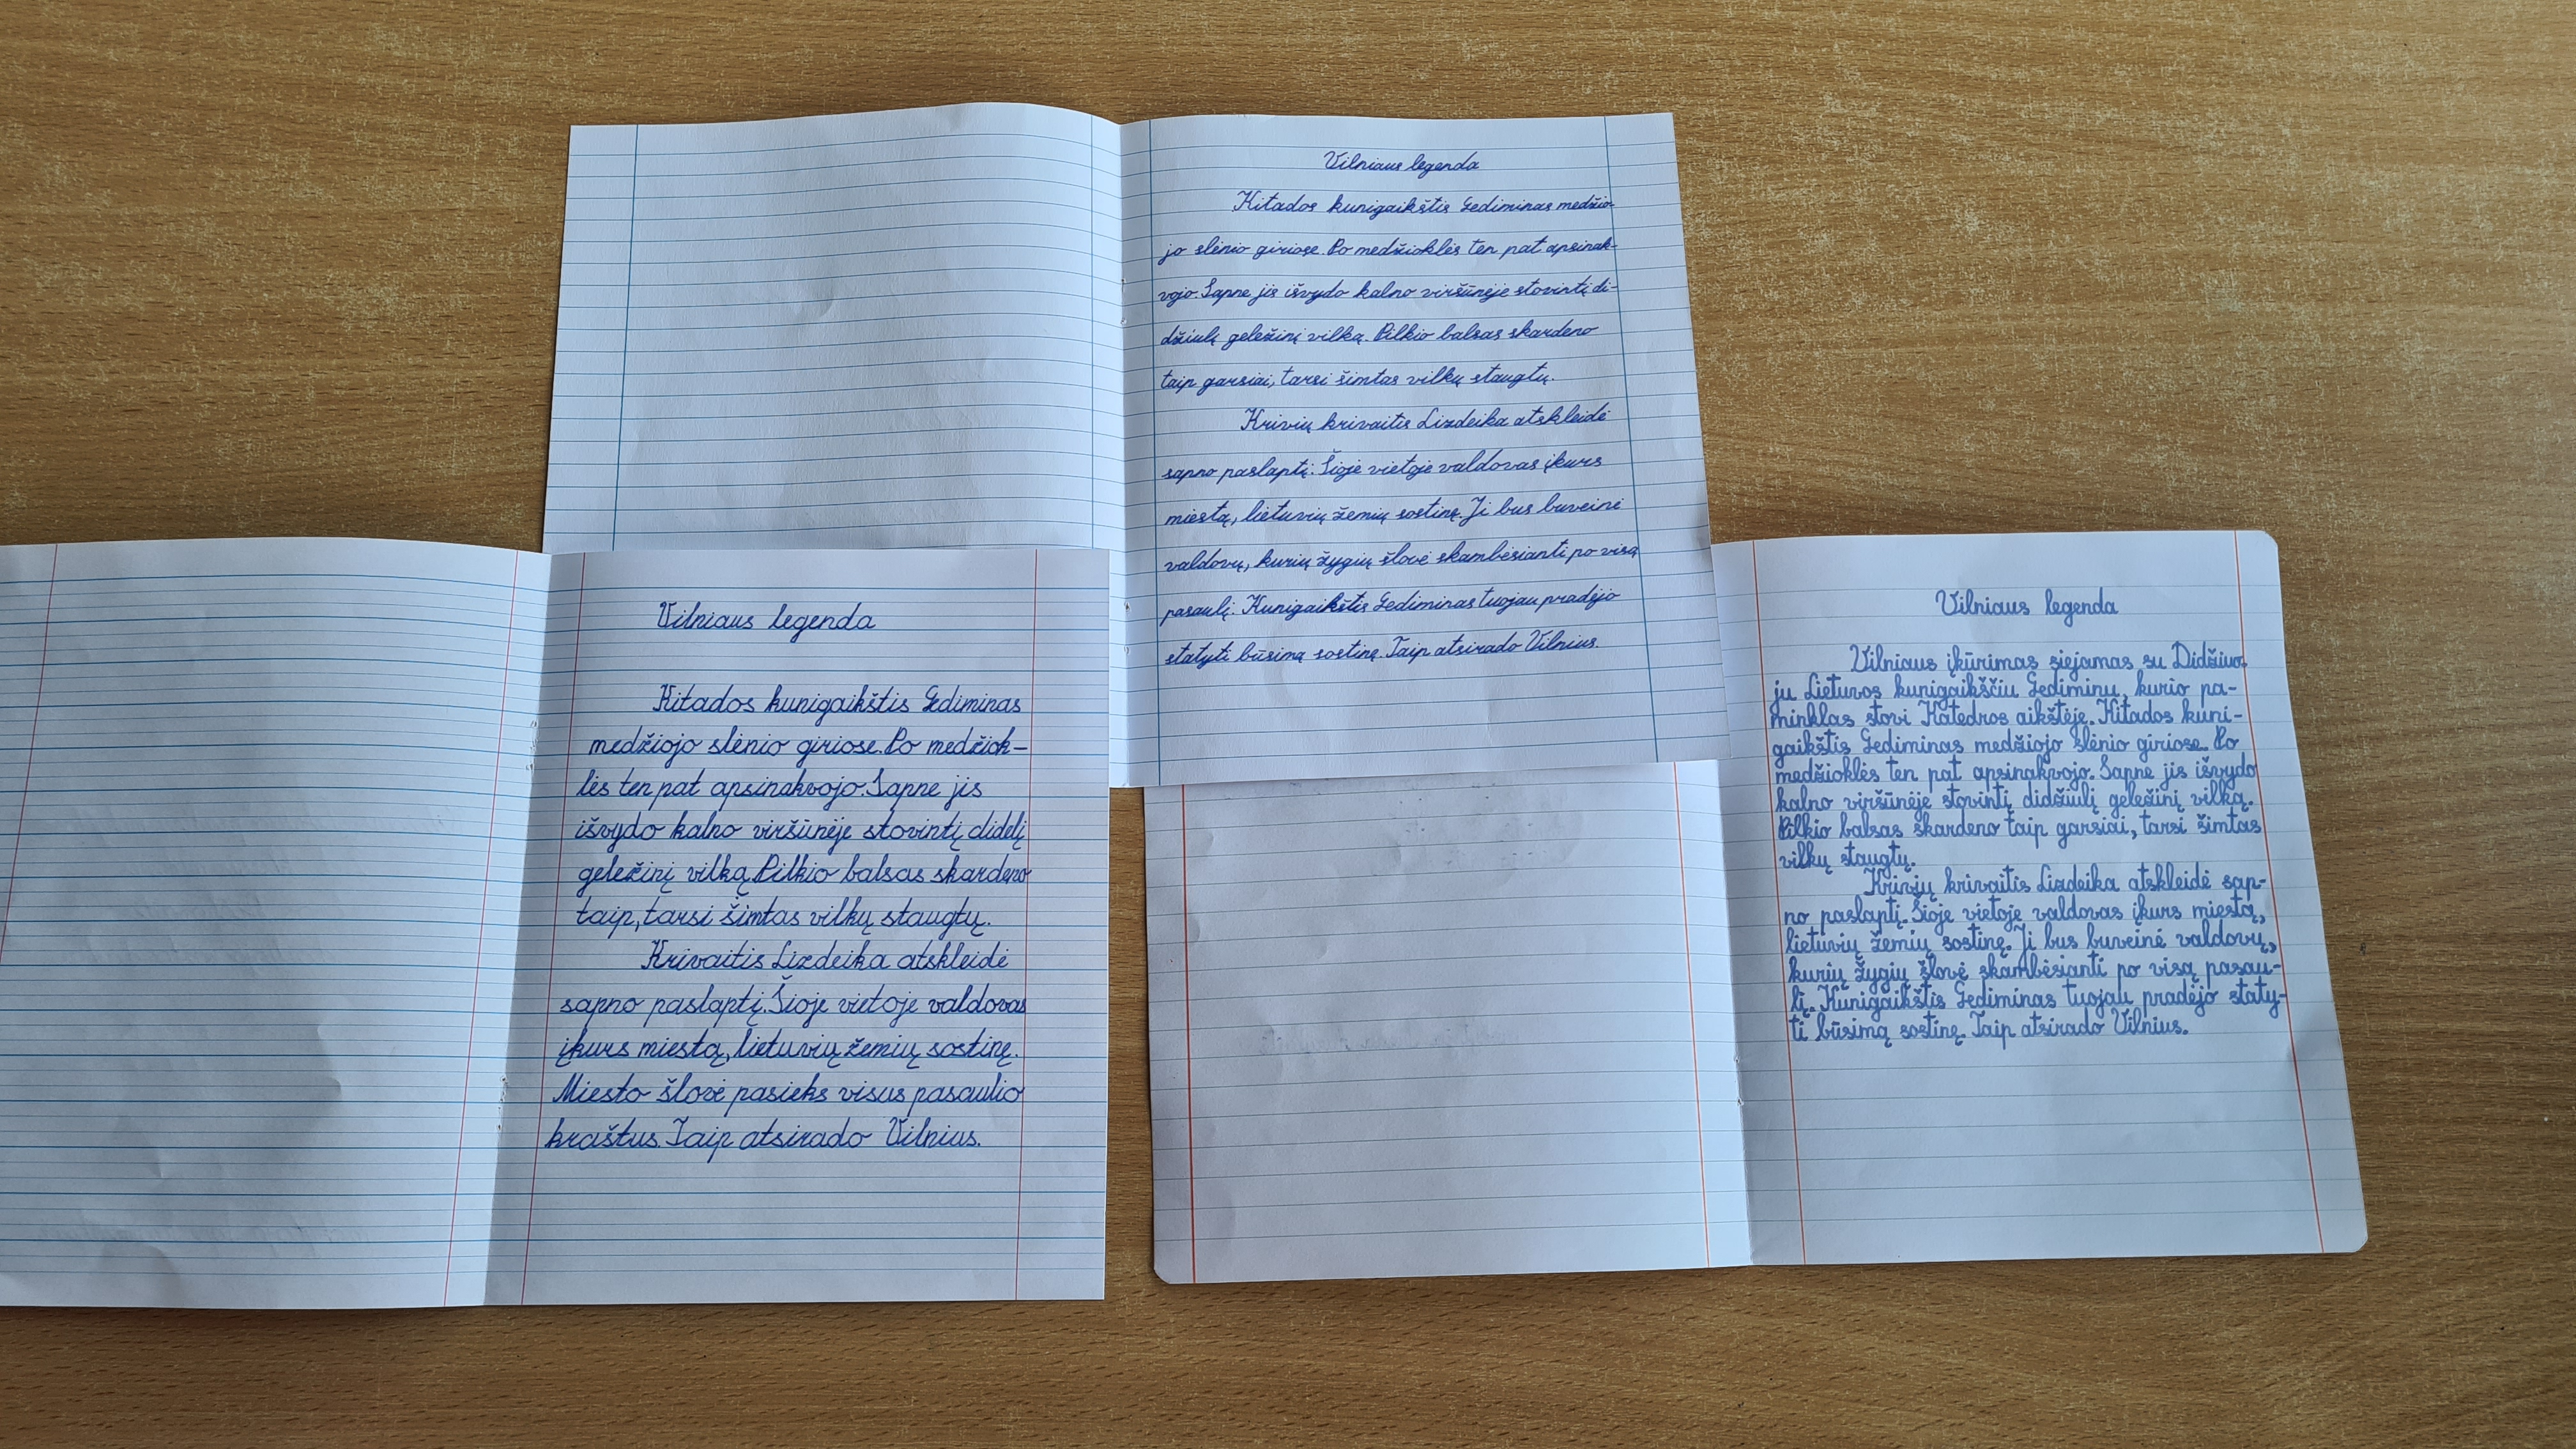 Vilniaus legenda
Kitados kunigaikštis Gediminas medžio-
jo slėnio giriose. Po medžioklės ten pat apsinak-
vojo. Sapne jis išvydo kalno viršūnėje stovintį di-
džiulį geležinį vilką. Pilkio balsas skardeno
taip garsiai, tarsi šimtas vilkų staugtų.
Krivių krivaitis Lizdeika atskleidė
sapno paslaptį. Šioje vietoje valdovas įkurs
miestą, lietuvių žemių sostinę. Ji bus buveinė
valdovų, kurių žygių šlovė skambėsianti po visą
pasaulį. Kunigaikštis Gediminas tuojau pradėjo
statyti būsimą sostinę. Taip atsirado Vilnius.
Vilniaus legenda
Kitados kunigaikštis Gediminas
medžiojo slėnio giriose. Po medžiok-
lės ten pat apsinakvojo. Sapne jis
išvydo kalno viršūnėje stovintį didelį
geležinį vilką. Pilkio balsas skardeno
taip, tarsi šimtas vilkų staugtų.
Krivaitis Lizdeika atskleidė
sapno paslaptį. Šioje vietoje valdovas
įkurs miestą, lietuvių žemių sostinę.
Miesto šlovė pasieks visus pasaulio
kraštus. Taip atsirado Vilnius.
Vilniaus legenda
Vilniaus įkūrimas siejamas su Didžiuo-
ju Lietuvos kunigaikščiu Gediminu, kurio pa-
minklas stovi Katedros aikštėje. Kitados kuni-
gaikštis Gediminas medžiojo slėnio giriose. Po
medžioklės ten pat apsinakvojo. Sapne jis išvydo
kalno viršūnėje stovintį didžiulį geležinį vilką.
Pilkio balsas skardeno taip garsiai, tarsi šimtas
vilkų staugtų.
Krivių krivaitis Lizdeika atskleidė sap-
no paslaptį. Šioje vietoje valdovas įkurs miestą,
lietuvių žemių sostinę. Ji bus buveinė valdovų,
kurių žygių šlovė skambėsianti po visą pasau-
lį. Kunigaikštis Gediminas tuojau pradėjo staty-
ti būsimą sostinę. Taip atsirado Vilnius.